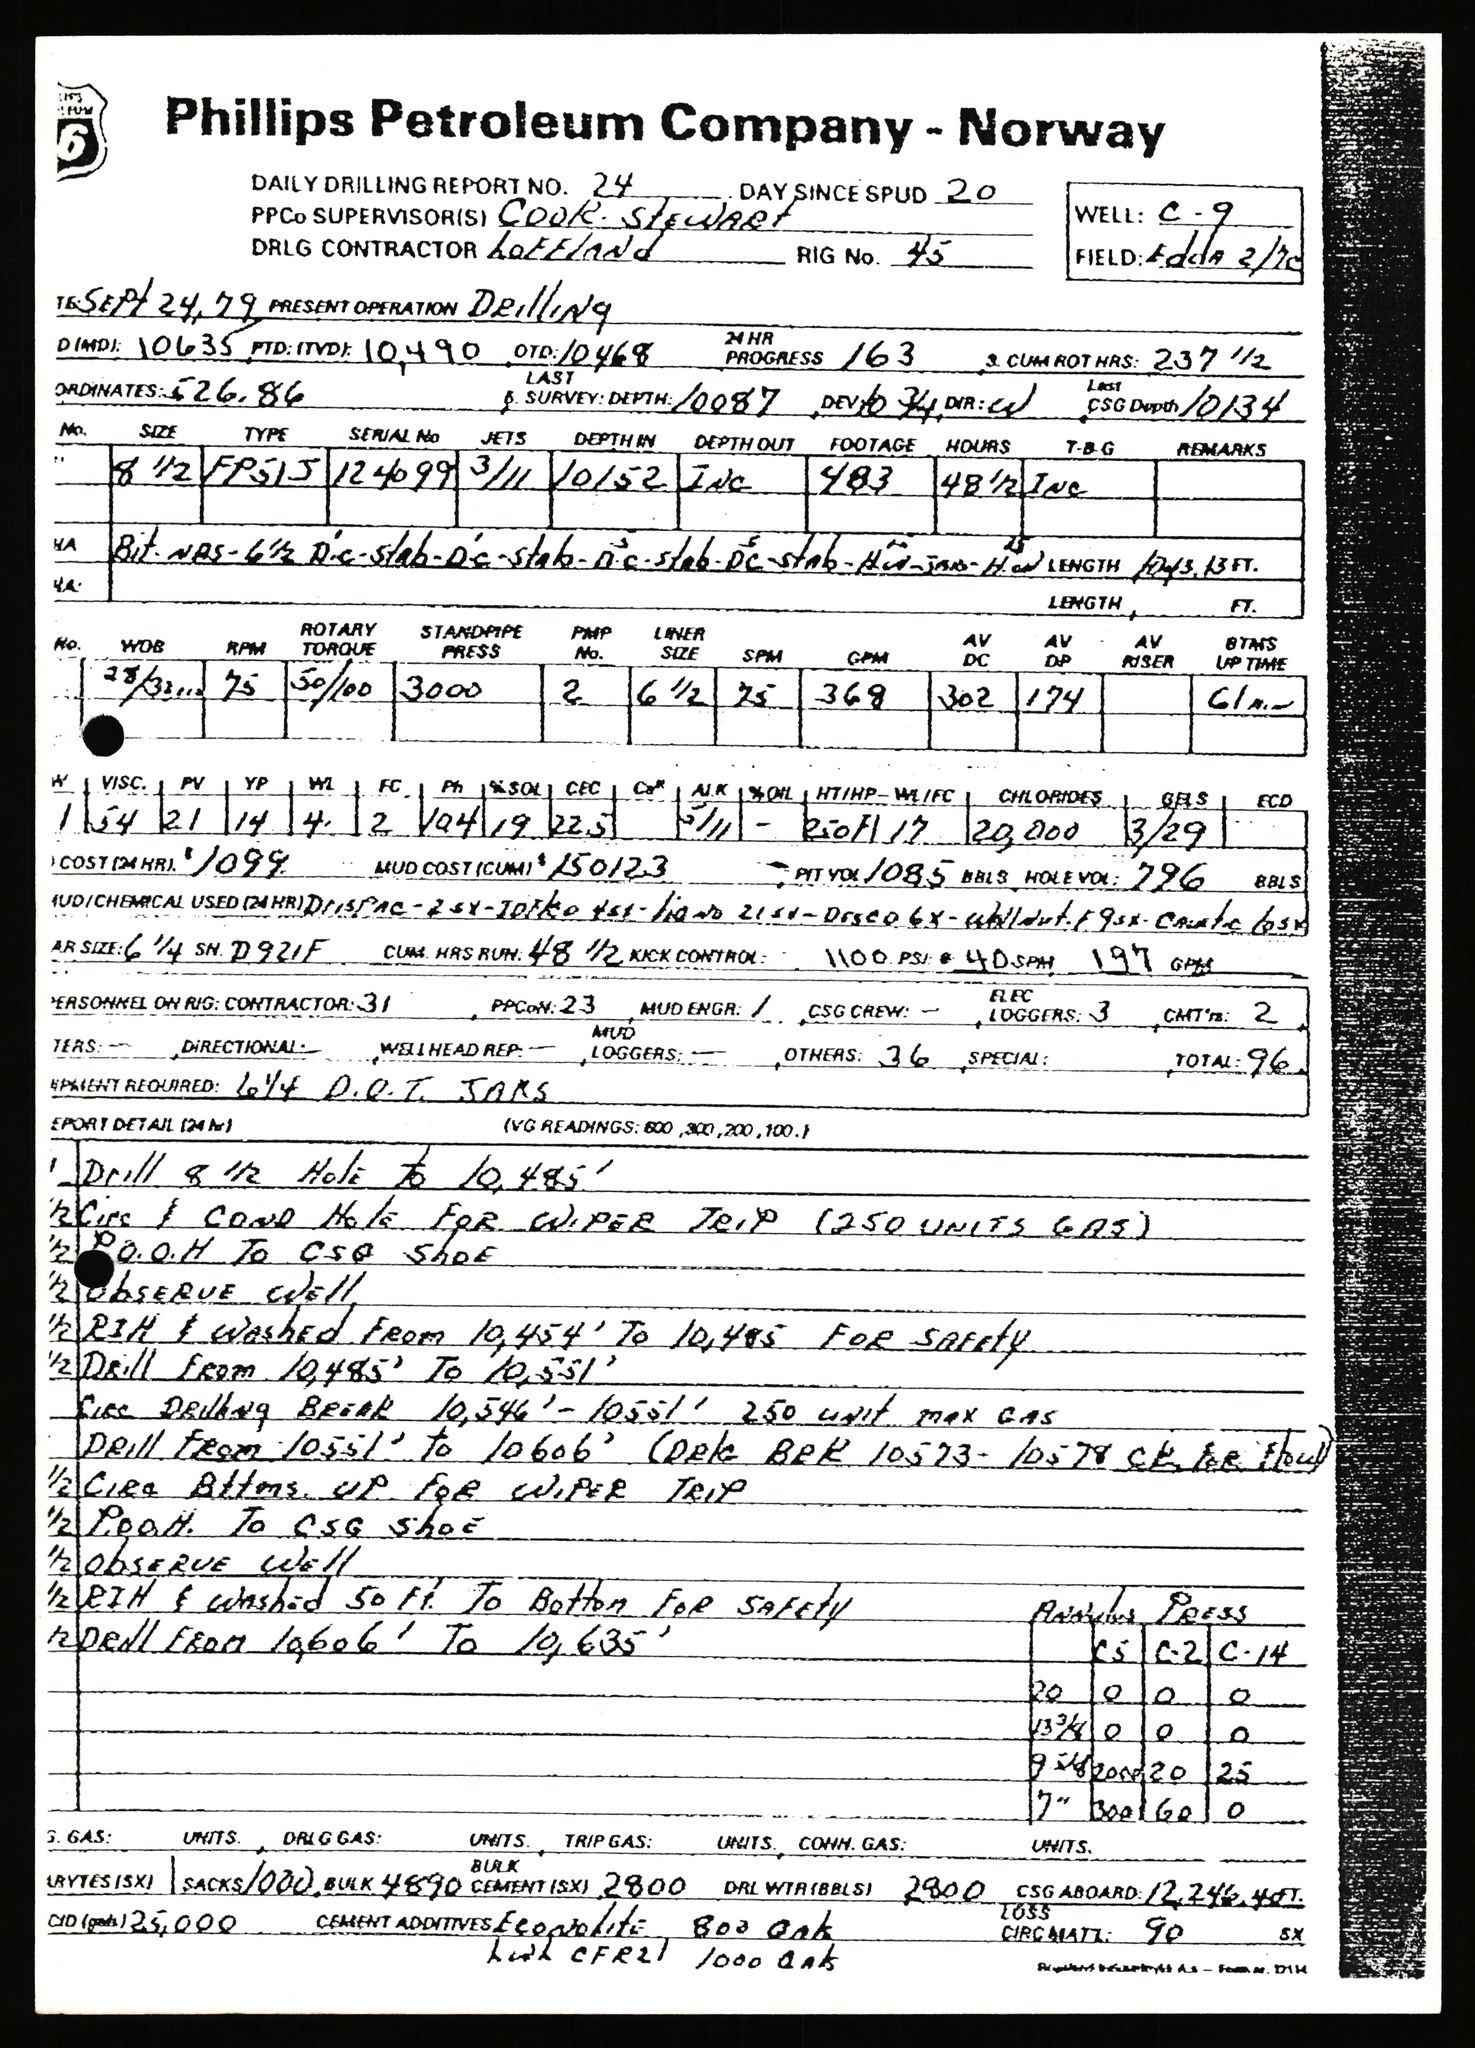 6
Phillips Petroleum Company - Norway
DAILY DRILLING REPORT NO. 24 DAY SINCE SPUD 20
PPCo SUPERVISOR(S) COOK - STEWART
WELL: C-9
DRLG CONTRACTOR LOFFLAND RIG No. 45
FIELD: Edda 2/7C
TE: SEPt 24, 79 PRESENT OPERATION DRilliNg
D (MD): 10635 PTD: (TVD): 10,490 OTD: 10468 24 HR PROGRESS 163 CUM ROT HRS: 237 1/2
ORDINATES: 526.86 LAST SURVEY: DEPTH: 10087 DEV: 10 3/4 DIR: W Last CSG Depth 10134
No. SIZE TYPE SERIAL No JETS DEPTH IN DEPTH OUT FOOTAGE HOURS T-B-G REMARKS
8 1/2 FP51J 124099 3/11 10152 INC 483 48 1/2 INC
HA Bit - NRS - 6 1/2 DC - Stab - DC - Stab - DC - Stab - DC - Stab - LENGTH FT.
HA: LENGTH FT.
No. WOB RPM ROTARY TORQUE STANDPIPE PRESS PMP No. LINER SIZE SPM GPM AV DC AV DP AV RISER BTMS UP TIME
75 50/100 3000 2 6 1/2 75 368 302 174 61
W VISC. PV YP WL FC Ph % SOL CEC Ca++ ALK % OIL HT/HP-WL/FC CHLORIDES GELS ECD
1 54 21 14 4. 2 10.4 19 22.5 - 250F/17 20,000 3/29
COST (24 HR). $ 1099. MUD COST (CUM) $ 150123 PIT VOL 1085 BBLS HOLE VOL: 796 BBLS
MUD/CHEMICAL USED (24 HR) DRISPAC - 2 SX - 21 SX - DESCO 6X - WallNut. F 9SX - Caustic 10SX
AR SIZE: 6 1/4 SN. D921F CUM. HRS RUN: 48 1/2 KICK CONTROL: 1100 PSI @ 40 SPM 197 GPM
PERSONNEL ON RIG: CONTRACTOR: 31 PPCoN: 23 MUD ENGR: 1 CSG CREW: - ELEC LOGGERS: 3 CMT'rs: 2
TERS: - DIRECTIONAL: - WELLHEAD REP: - MUD LOGGERS: - OTHERS: 36 SPECIAL: TOTAL: 96
IPMENT REQUIRED: 6 1/4 D.O.T. JARS
EPORT DETAIL (24 hr) (VG READINGS: 600, 300, 200, 100.)
1 Drill 8 1/2 Hole To 10,485'
1/2 Circ & COND Hole FOR WIPER TRIP (250 UNITS GAS)
1/2 P.O.O.H To CSG ShoE
1/2 ObSERVE WEll
1/2 RIH & WAShed From 10,454' To 10,485 FOR SAFEty
1/2 DRill From 10,485' To 10,551'
Circ DRilling BREAK 10,546' - 10551' 250 unit max GAS
DRill From 10551' To 10606' (DRlG BRK 10573 - 10578 CK. FOR Flow)
1/2 CIRC Bttms. UP FOR WIPER TRIP
1/2 P.O.O.H. To CSG ShoE
1/2 ObSERVE WEll
1/2 RIH & WAShed 50 Ft. To Botton FOR SAFEty
1/2 DRill FROM 10,606' To 10,635'
ANNulus PRESS
C5 C-2 C-14
20 0 0 0
13 3/8 0 0 0
9 5/8 2000 20 25
7" 300 60 0
G. GAS: UNITS. DRLG GAS: UNITS. TRIP GAS: UNITS. CONN. GAS: UNITS.
ARYTES (SX) SACKS 1000 BULK 4890 BULK CEMENT (SX) 2800 DRL WTR (BBLS) 2800 CSG ABOARD: 12,246.40 FT.
CID (gals) 25,000 CEMENT ADDITIVES Econolite 800 GAls LOSS CIRC MATL: 90 SX
CFR2L 1000 GAls